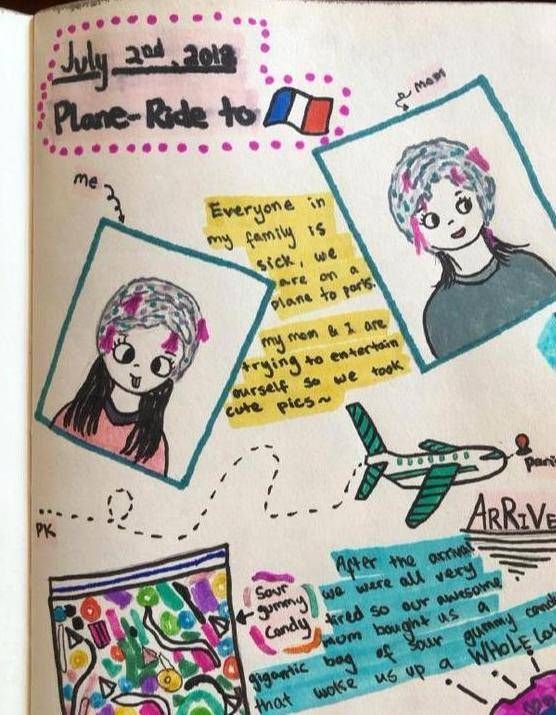 July 2nd, 2018
Plane-Ride to
mom
me
Everyone in
my family is
sick, we
are on a
plane to paris.
my mom & I are
trying to entertain
ourself so we took
cute pics~
PK
paris
ARRIVE
After the arrival
we were all very
tired so our awesome
mom bought us a
gigantic bag of sour gummy candy
that woke us up a WHOLE
Sour
gummy
Candy